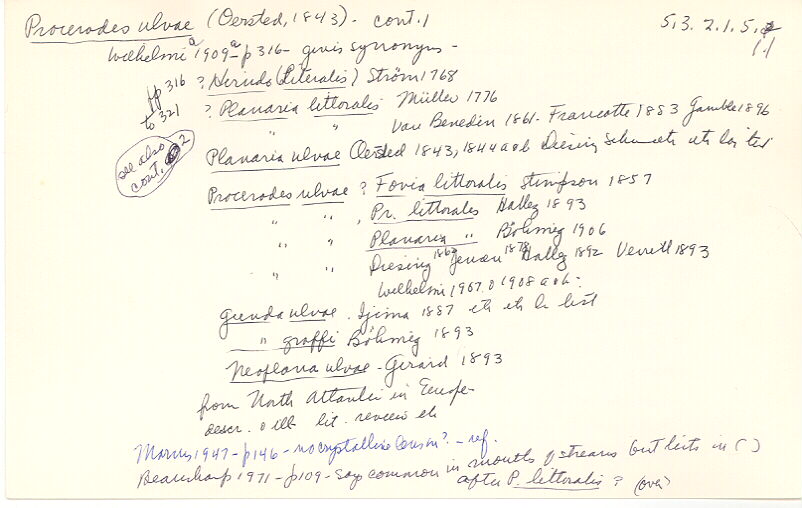 Procerodes ulvae (Oersted, 1843). cont. 1
5.3.2.1.5.
1.1
Wilhelmi 1909a - p 316 - gives synonyms -
pp 316 to 321
? Hirudo (Literalis) Ström 1768
? Planaria littoralis Müller 1776
" " Van Beneden 1861 - Francotte 1883 Gamble 1896
see also cont. 2
Planaria ulvae Oersted 1843, 1844 a & b Diesing
Procerodes ulvae ? Fovia littoralis Stimpson 1857
" " , Pr. littoralis Hallez 1893
" " Planaria " Böhmig 1906
" " Diesing 1862 Jensen 1878 Hallez 1892 Verrill 1893
Wilhelmi 1907 & 1908 a & b -
Gunda ulvae . Ijima 1887 etc etc list
" graffi Böhmig 1893
Neoplana ulvae - Girard 1893
from North Atlantic in Europe
descr. & ill. lit. review etc
1947 - p 146 - no crystalline ? - ref.
Beauchamp 1971 - p 109 - says common in mouths of streams but lists in ( )
after P. littoralis ? (over)